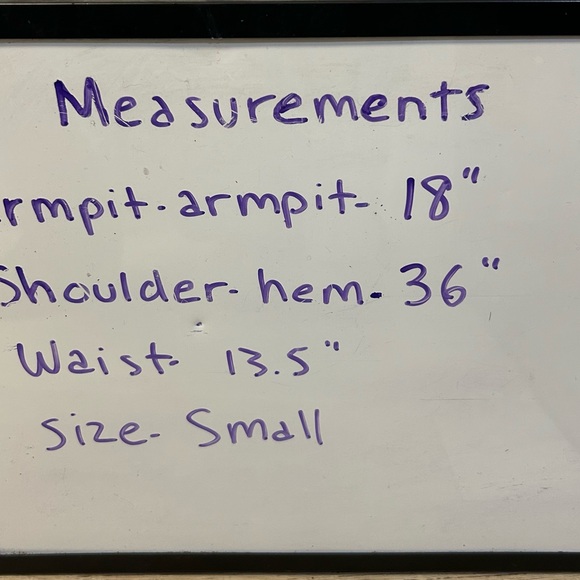 Measurements
armpit-armpit- 18"
Shoulder-hem- 36"
Waist- 13.5"
Size- Small